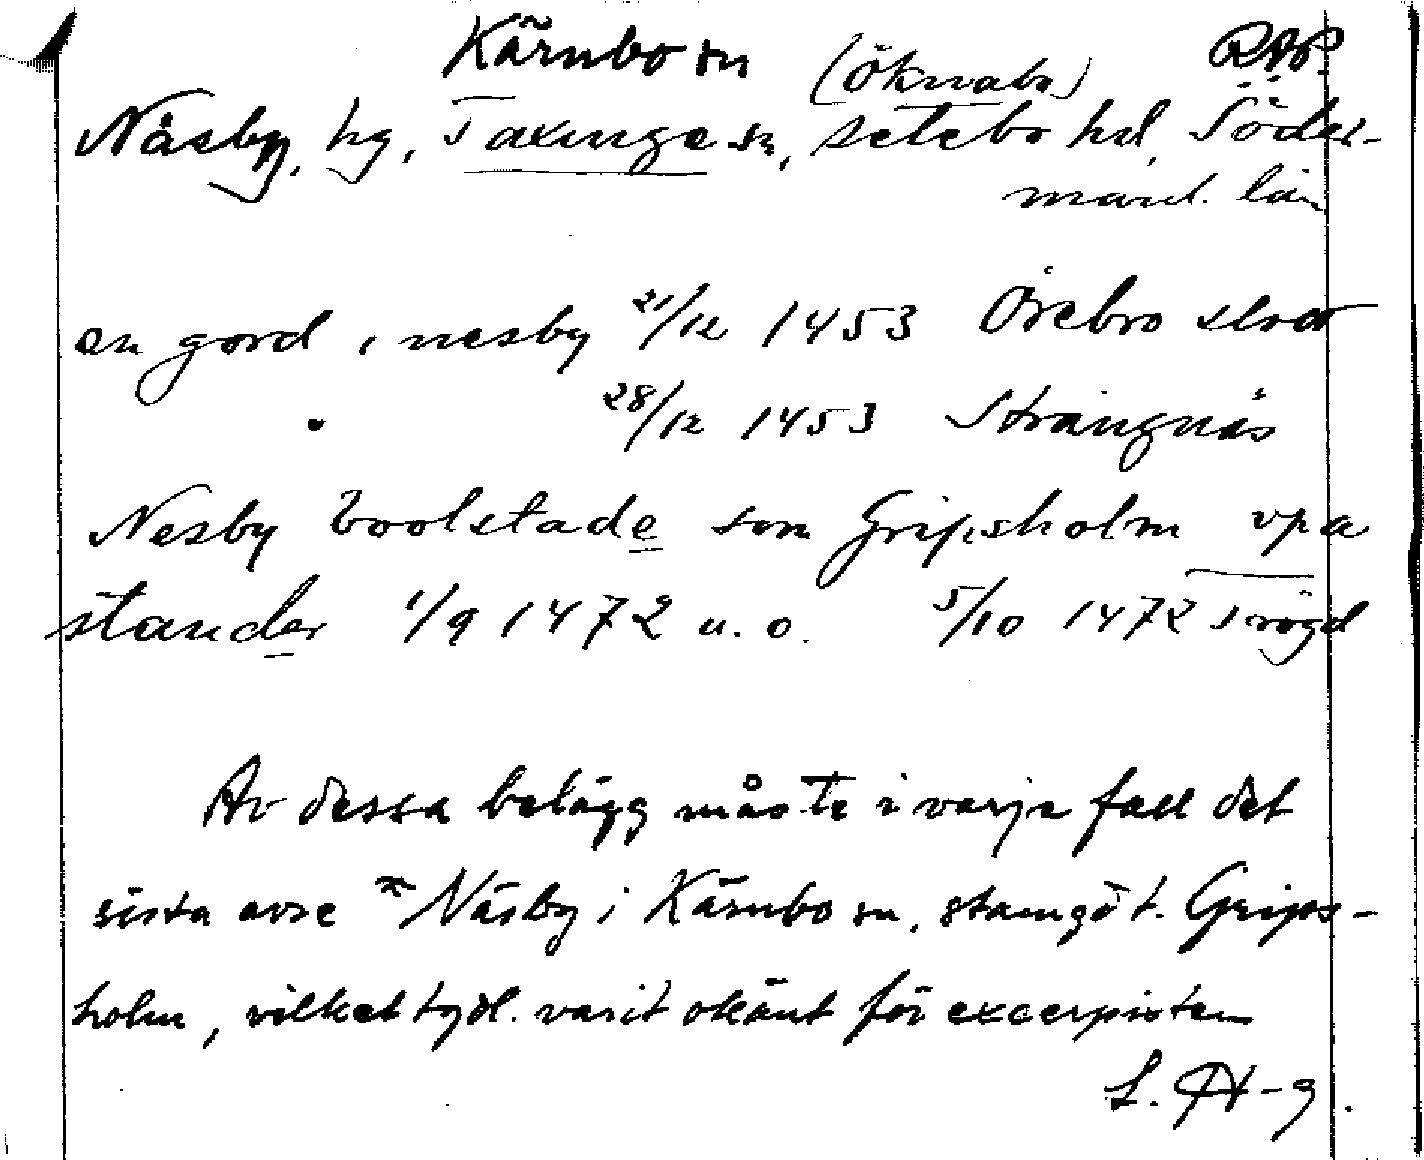 Kärnbo sn (Öknabo) RAP.
Näsby, hg, Taxinge sn, Selebo hd, Söder-
manl. län
en gord i nesby 21/12 1453 Örebro slott
" 28/12 1453 Strängnäs
Nesby boolstade som Gripsholm vpa
stander 1/9 1472 u. o. 5/10 1472 Trögd
Av dessa belägg måste i varje fall det
sista avse *Näsby i Kärnbo sn, stamgd t. Grips-
holm, vilket tydl. varit okänt för excerpisten